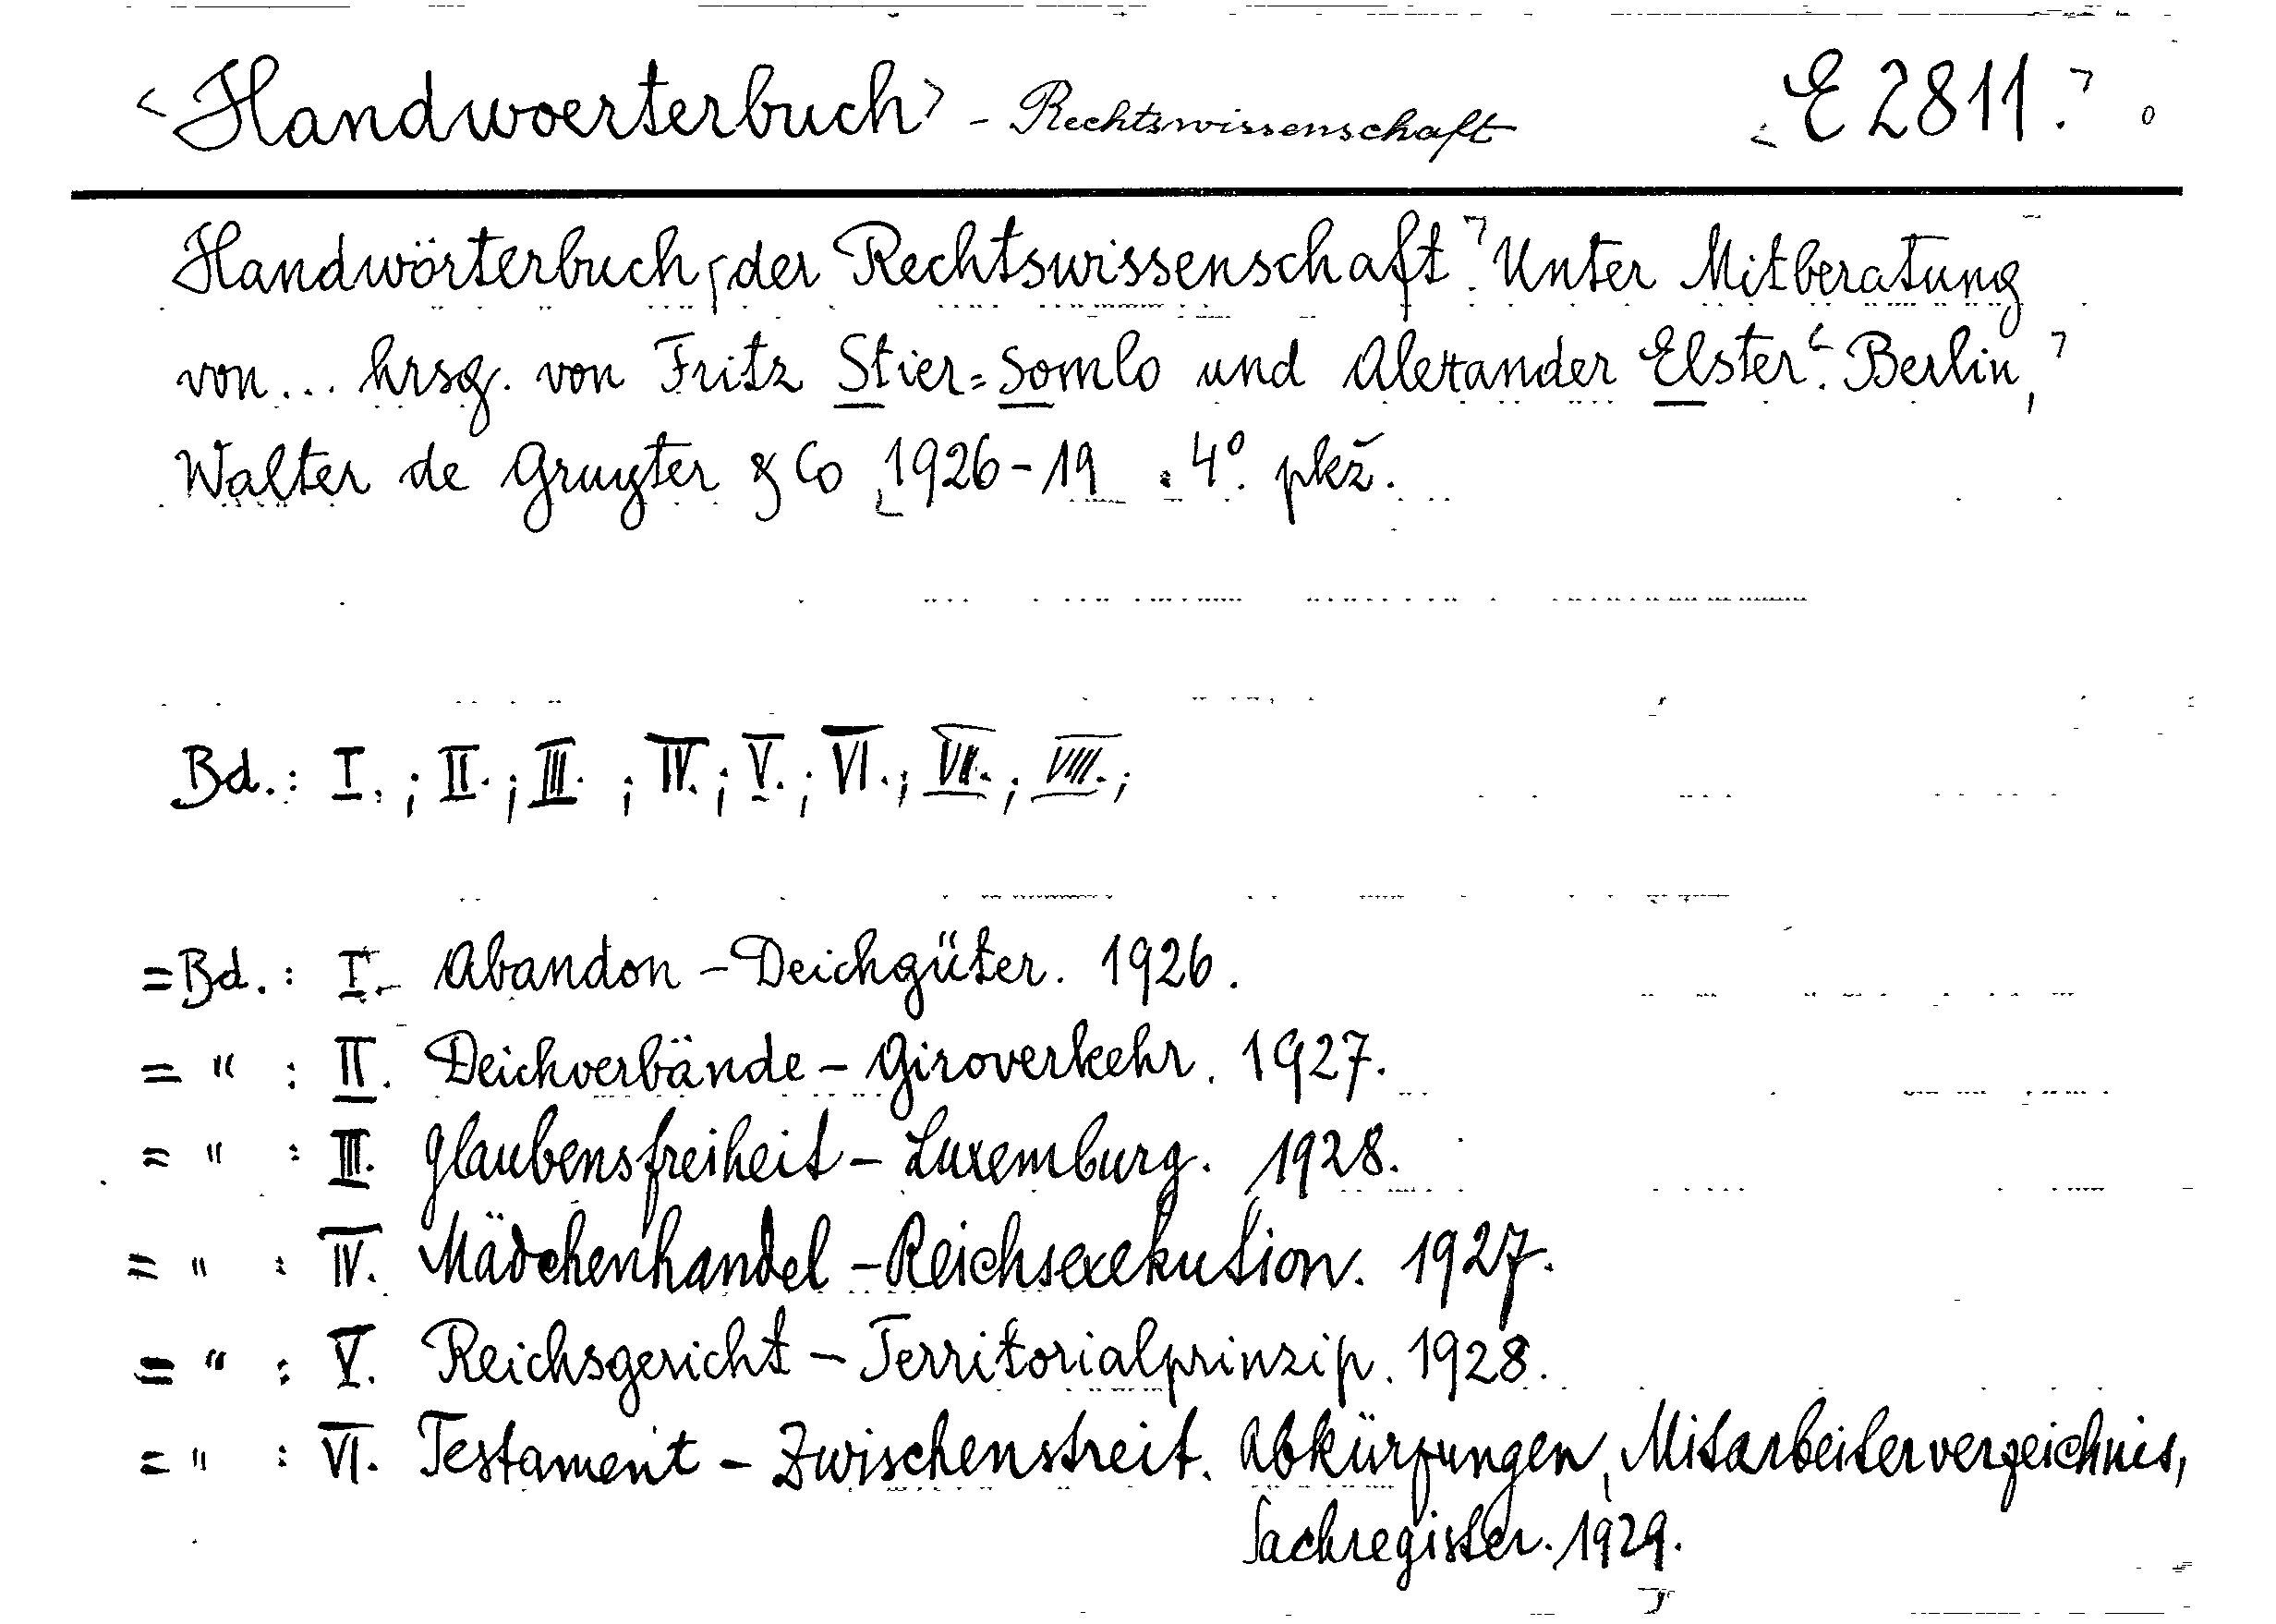 <Handwoerterbuch> - Rechtswissenschaft E 2811.
Handwörterbuch der Rechtswissenschaft. Unter Mitberatung
von... hrsg. von Fritz Stier=Somlo und Alexander Elster. Berlin,
Walter de Gruyter & Co 1926-19 . 4°. pkž.
Bd.: I. ; II. ; III. ; IV. ; V. ; VI. ; VII. ; VIII. ;
=Bd. : I. Abandon - Deichgüter. 1926.
= " : II. Deichverbände - Giroverkehr. 1927.
= " : III. Glaubensfreiheit - Luxemburg. 1928.
= " : IV. Mädchenhandel - Reichsexekution. 1927.
= " : V. Reichsgericht - Territorialprinzip. 1928.
= " : VI. Testament - Zwischenstreit. Abkürzungen, Mitarbeiterverzeichnis,
Sachregister. 1929.